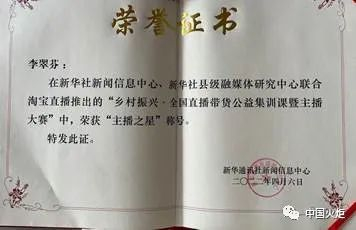 荣誉证书
李翠芬：
在新华社新闻信息中心、新华社县级融媒体研究中心联合
淘宝直播推出的“乡村振兴·全国直播带货公益集训课暨主播
大赛”中，荣获“主播之星”称号。
特发此证。
新华通讯社新闻信息中心
二〇二二年四月六日
中国火炬